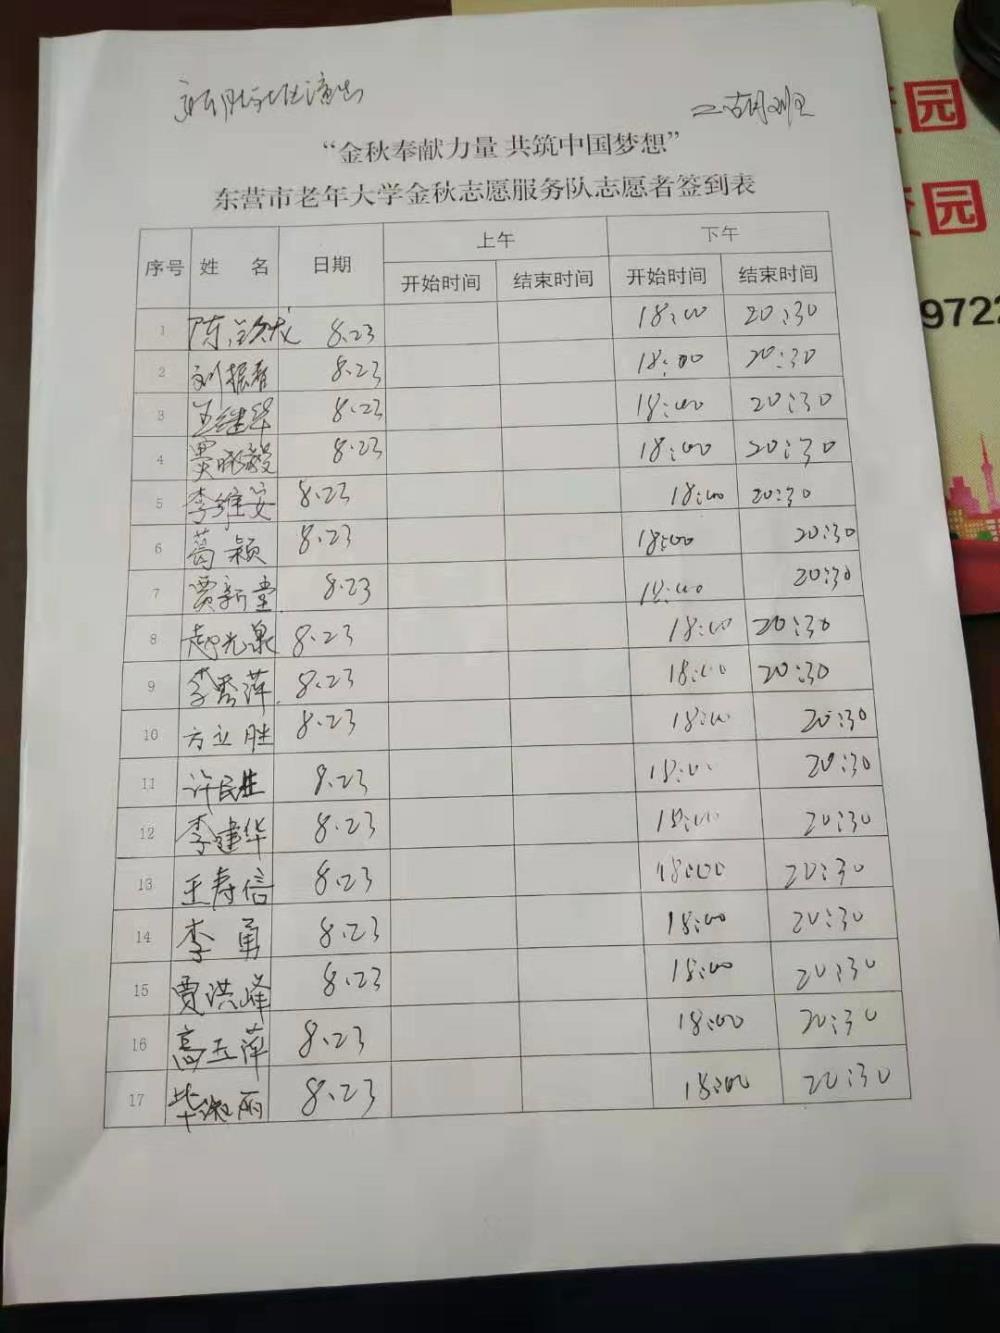 二胡班
园
园
9722
“金秋奉献力量 共筑中国梦想”
东营市老年大学金秋志愿服务队志愿者签到表
序号 姓 名 日期 上午 下午
开始时间 结束时间 开始时间 结束时间
1 陈 8.23 18:00 20:30
2 刘振春 8.23 18:00 20:30
3 王继华 8.23 18:00 20:30
4 贾 毅 8.23 18:00 20:30
5 李维安 8.23 18:00 20:30
6 葛颖 8.23 18:00 20:30
7 贾新堂 8.23 18:00 20:30
8 赵光泉 8.23 18:00 20:30
9 李秀萍 8.23 18:00 20:30
10 方立胜 8.23 18:00 20:30
11 许民胜 8.23 18:00 20:30
12 李建华 8.23 18:00 20:30
13 王寿信 8.23 18:00 20:30
14 李勇 8.23 18:00 20:30
15 贾洪峰 8.23 18:00 20:30
16 高玉萍 8.23 18:00 20:30
17 毕淑丽 8.23 18:00 20:30